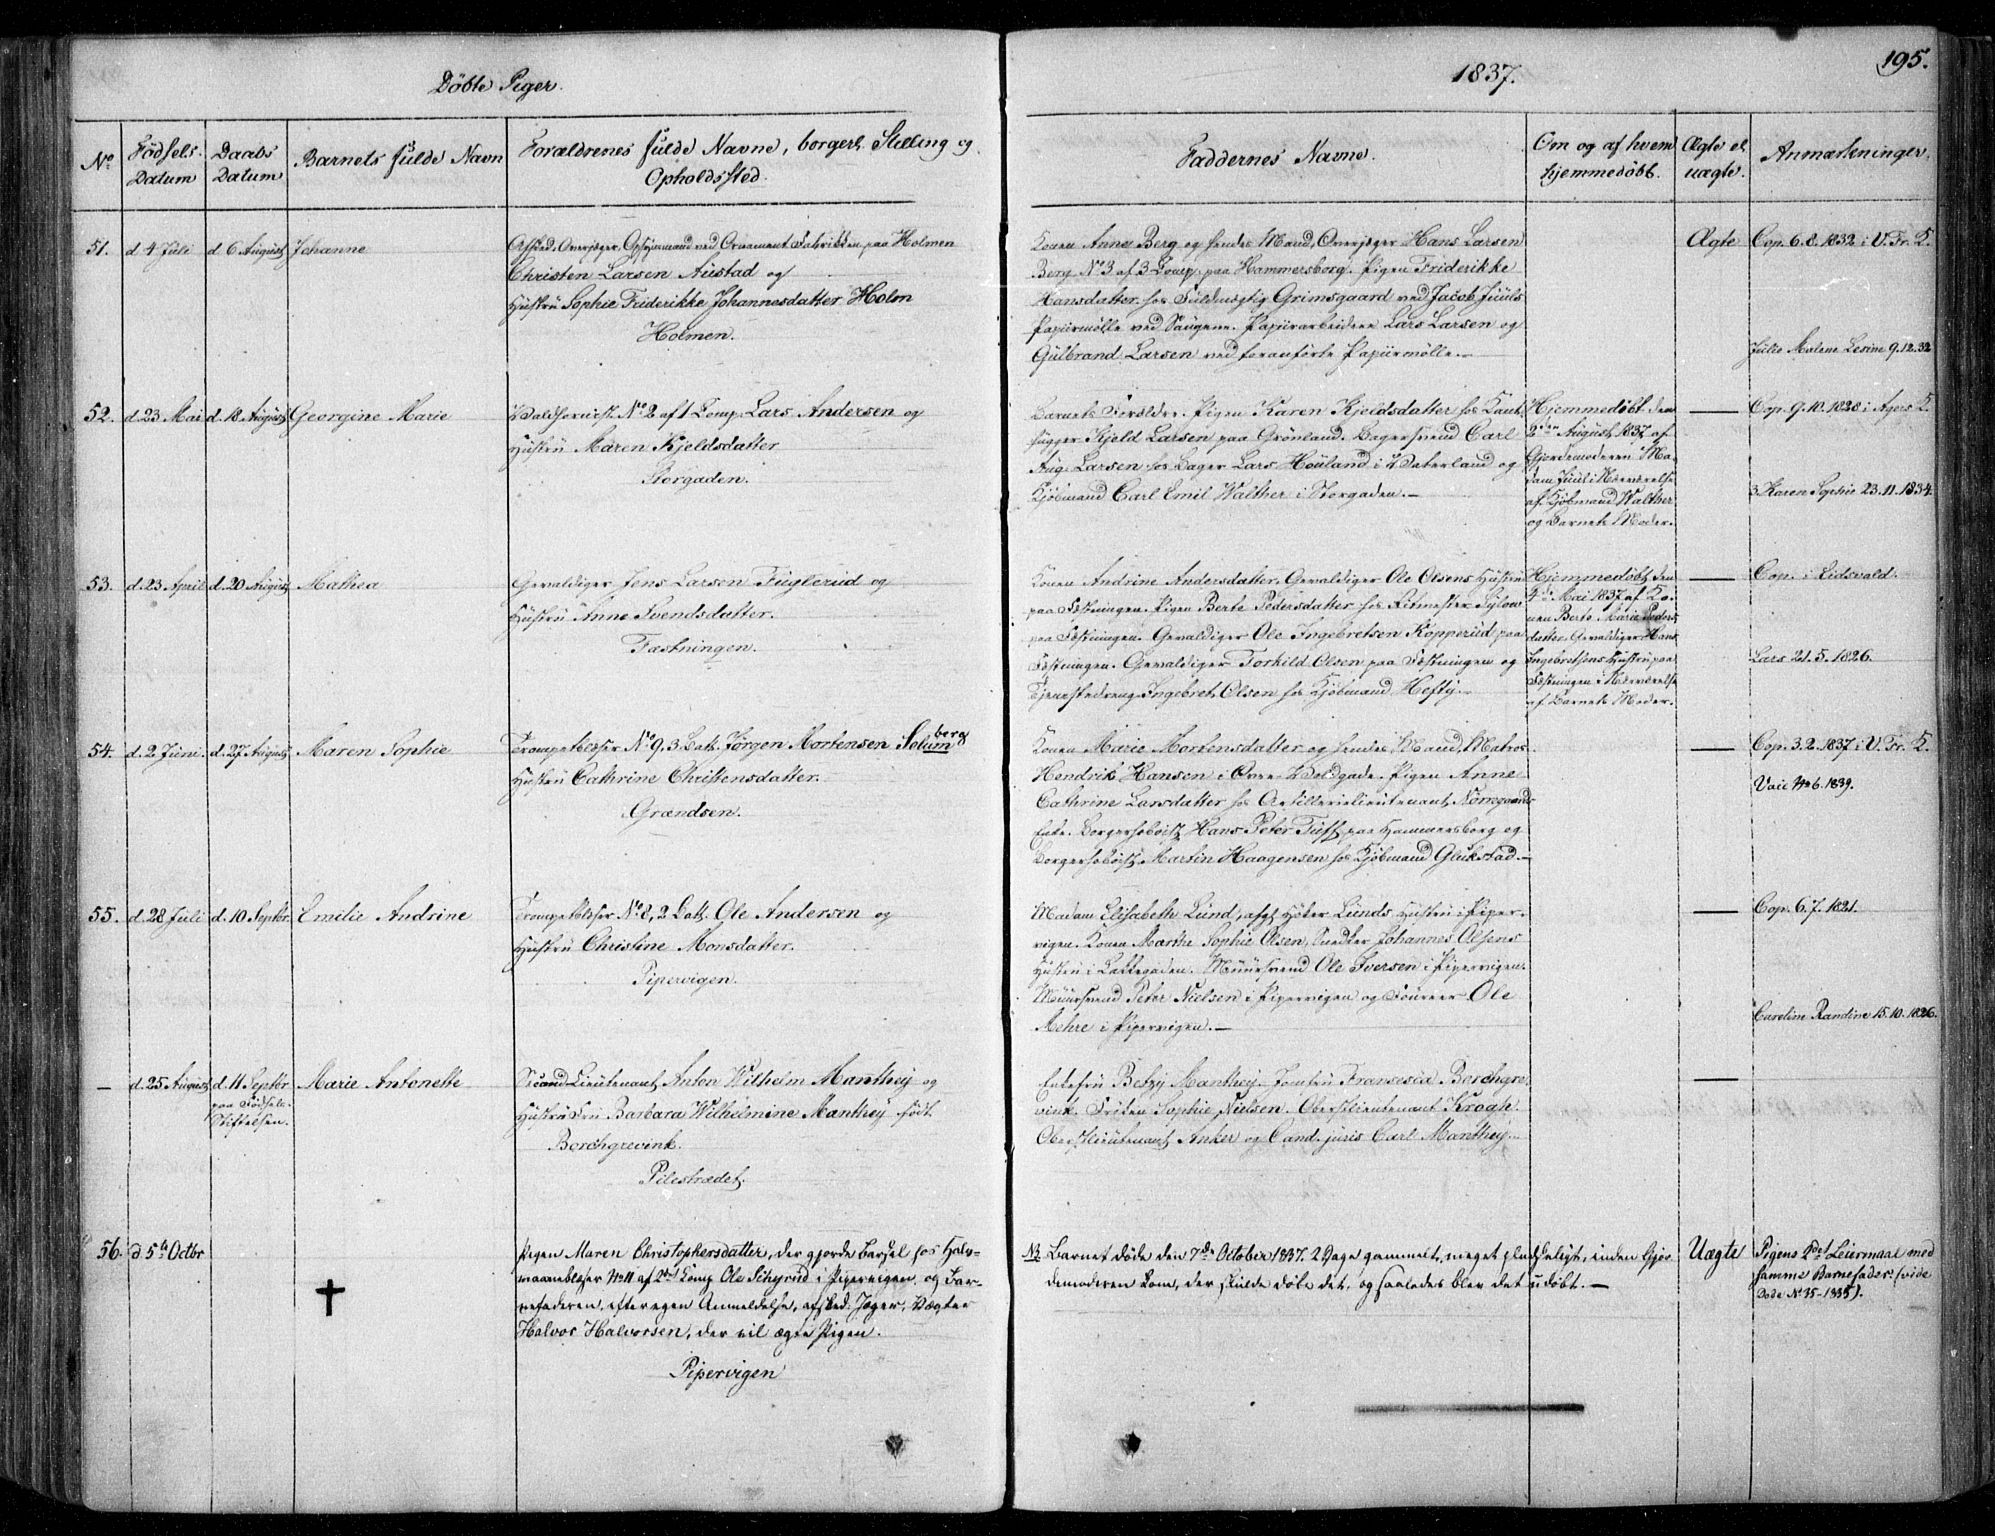 Døbte Piger.
1837.
195.
No
Fødsels-
Datum
Daabs
Datum
Barnets fulde Navn
Forældrenes fulde Navne, borgerl. Stilling og
Opholdssted.
Faddernes Navne.
Om og af hvem
hjemmedøbt.
Ægte el.
uægte.
Anmærkninger.
51.
d 4 Juli
d 6 August
Johanne
Afsked. Overjæger, Opsynsmand ved Ornament Fabrikken paa Holmen
Christen Larsen Austad og
Hustru Sophie Friderikke Johannesdatter Holm
Holmen.
Konen Anne Berg og hendes Mand, Overjæger Hans Larsen
Berg No 3 af 3 Comp. paa Hammersborg. Pigen Friderikke
Hansdatter hos Fuldmægtig Grimsgaard ved Jacob Juuls
Papiirmølle ved Saugene. Papiirarbeidere Lars Larsen og
Gulbrand Larsen ved foranførte Papiirmølle.—
Ægte
Cop. 6.8.1832 i V. Fr. K.
Julie Malene Lesine 9.12.32
52.
d. 23 Mai
d. 18 August
Georgine Marie
Valdhornist No 2 af 1 Comp. Lars Andersen og
Hustru Maren Kjeldsdatter
Storgaden.
Barnets Forældre. Pigen Karen Kjeldsdatter hos
hugger Kjeld Larsen paa Grønland. Bagersvend Carl
Aug. Larsen hos Bager Lars Houland i Vaterland og
Kjøbmand Carl Emil Walther i Storgaden.—
Hjemmedøbt den
2den August 1837 af
Gjordemoderen Ma-
dam Juul i Nærværelse
af Kjøbmand Walther
og Barnets Moder.
—
Cop. 9.10.1828 i Agers K.
3 Karen Sophie 23.11.1834.
53.
d. 23 April
d. 20 August
Mathea
Gevaldiger Jens Larsen Fuglerud og
Hustru Anne Svendsdatter.
Fæstningen.
Konen Andrine Andersdatter, Gevaldiger Ole Olsens Hustru
paa Fæstningen. Pigen Berte Pedersdatter hos Ritmester Sylow
paa Fæstningen. Gevaldiger Ole Ingebretsen Kopperud paa
Fæstningen. Gevaldiger Torkild Olsen paa Fæstningen og
Tjenestedreng Ingebret Olsen hos Kjøbmand Hefty.—
Hjemmedøbt den
4de Mai 1837 af Ko-
nen Berte Marie Peders-
datter Gevaldiger Hans
Ingebretsens Hustru paa
Fæstningen i Nærværelse
af Barnets Moder.
—
Cop. i Eidsvold.
Lars 21.5.1826.
54.
d. 2 Juni.
d. 27 August
Maren Sophie
Trompetblæser No 9. 3. Batt. Jørgen Mortensen Solum
berg
Hustru Cathrine Christensdatter.
Grændsen.
Konen Marie Mortensdatter og hendes Mand, Matros
Hendrik Hansen i Øvre Voldgade. Pigen Anne
Cathrine Larsdatter hos Artillerielieutenant Nørregaards
Enke. Borgerhoboist Hans Peter Tuff paa Hammersborg og
Borgerhoboist Martin Haagensen hos Kjøbmand Glukstad.—
—
Cop. 3.2.1837 i V. Fr. K.
No 6. 1839.
55.
d. 28 Juli
d. 10 Septbr.
Emilie Andrine
Trompetblæser No 8, 2 Batt. Ole Andersen og
Hustru Christine Monsdatter.
Pipervigen.
Madam Elisabeth Lund, afg. Høker Lunds Hustru i Piper-
vigen. Konen Marthe Sophie Olsen, Snedker Johannes Olsens
Hustru i Rattegaden. Muursvend Ole Iversen i Pipervigen.
Muursvend Peter Nielsen i Pipervigen og Foureer Ole
Mehre i Pipervigen.—
—
Cop. 6.7.1821.
Caroline Randine 15.10.1826.
—
d. 25 August
d. 11 Septbr.
paa Fødsels-
Stiftelsen.
Marie Antonette
Second Lieutenant Anton Wilhelm Manthey og
Hustru Fru Barbara Wilhelmine Manthey født
Borchgrevink.
Pilestrædet.
Enkefru Betzy Manthey. Jomfru Fransesca Borchgre-
vink. Frøken Sophie Nielsen. Oberstlieutenant Krogh.
Oberstlieutenant Anker og Cand. juris Carl Manthey.
—
56.
d 5te Octbr
†
Pigen Maren Christophersdatter, der gjorde Barsel hos Halv-
maaneblæser No 11 af 2det Comp Ole Schyrud i Pipervigen, og Bar-
nefaderen, efter egen Anmeldelse, afsked. Jæger, Vægter
Halvor Halvorsen, der vil ægte Pigen.
Pipervigen
NB. Barnet døde den 7de October 1837. 2 Dage gammelt, meget pludseligt, inden Gjor-
demoderen kom, der skulde døbe det, og saaledes blev det udøbt.—
Uægte
Pigens 2det Leiermaal med
samme Barnefader (vide
Døde No 35-1835).